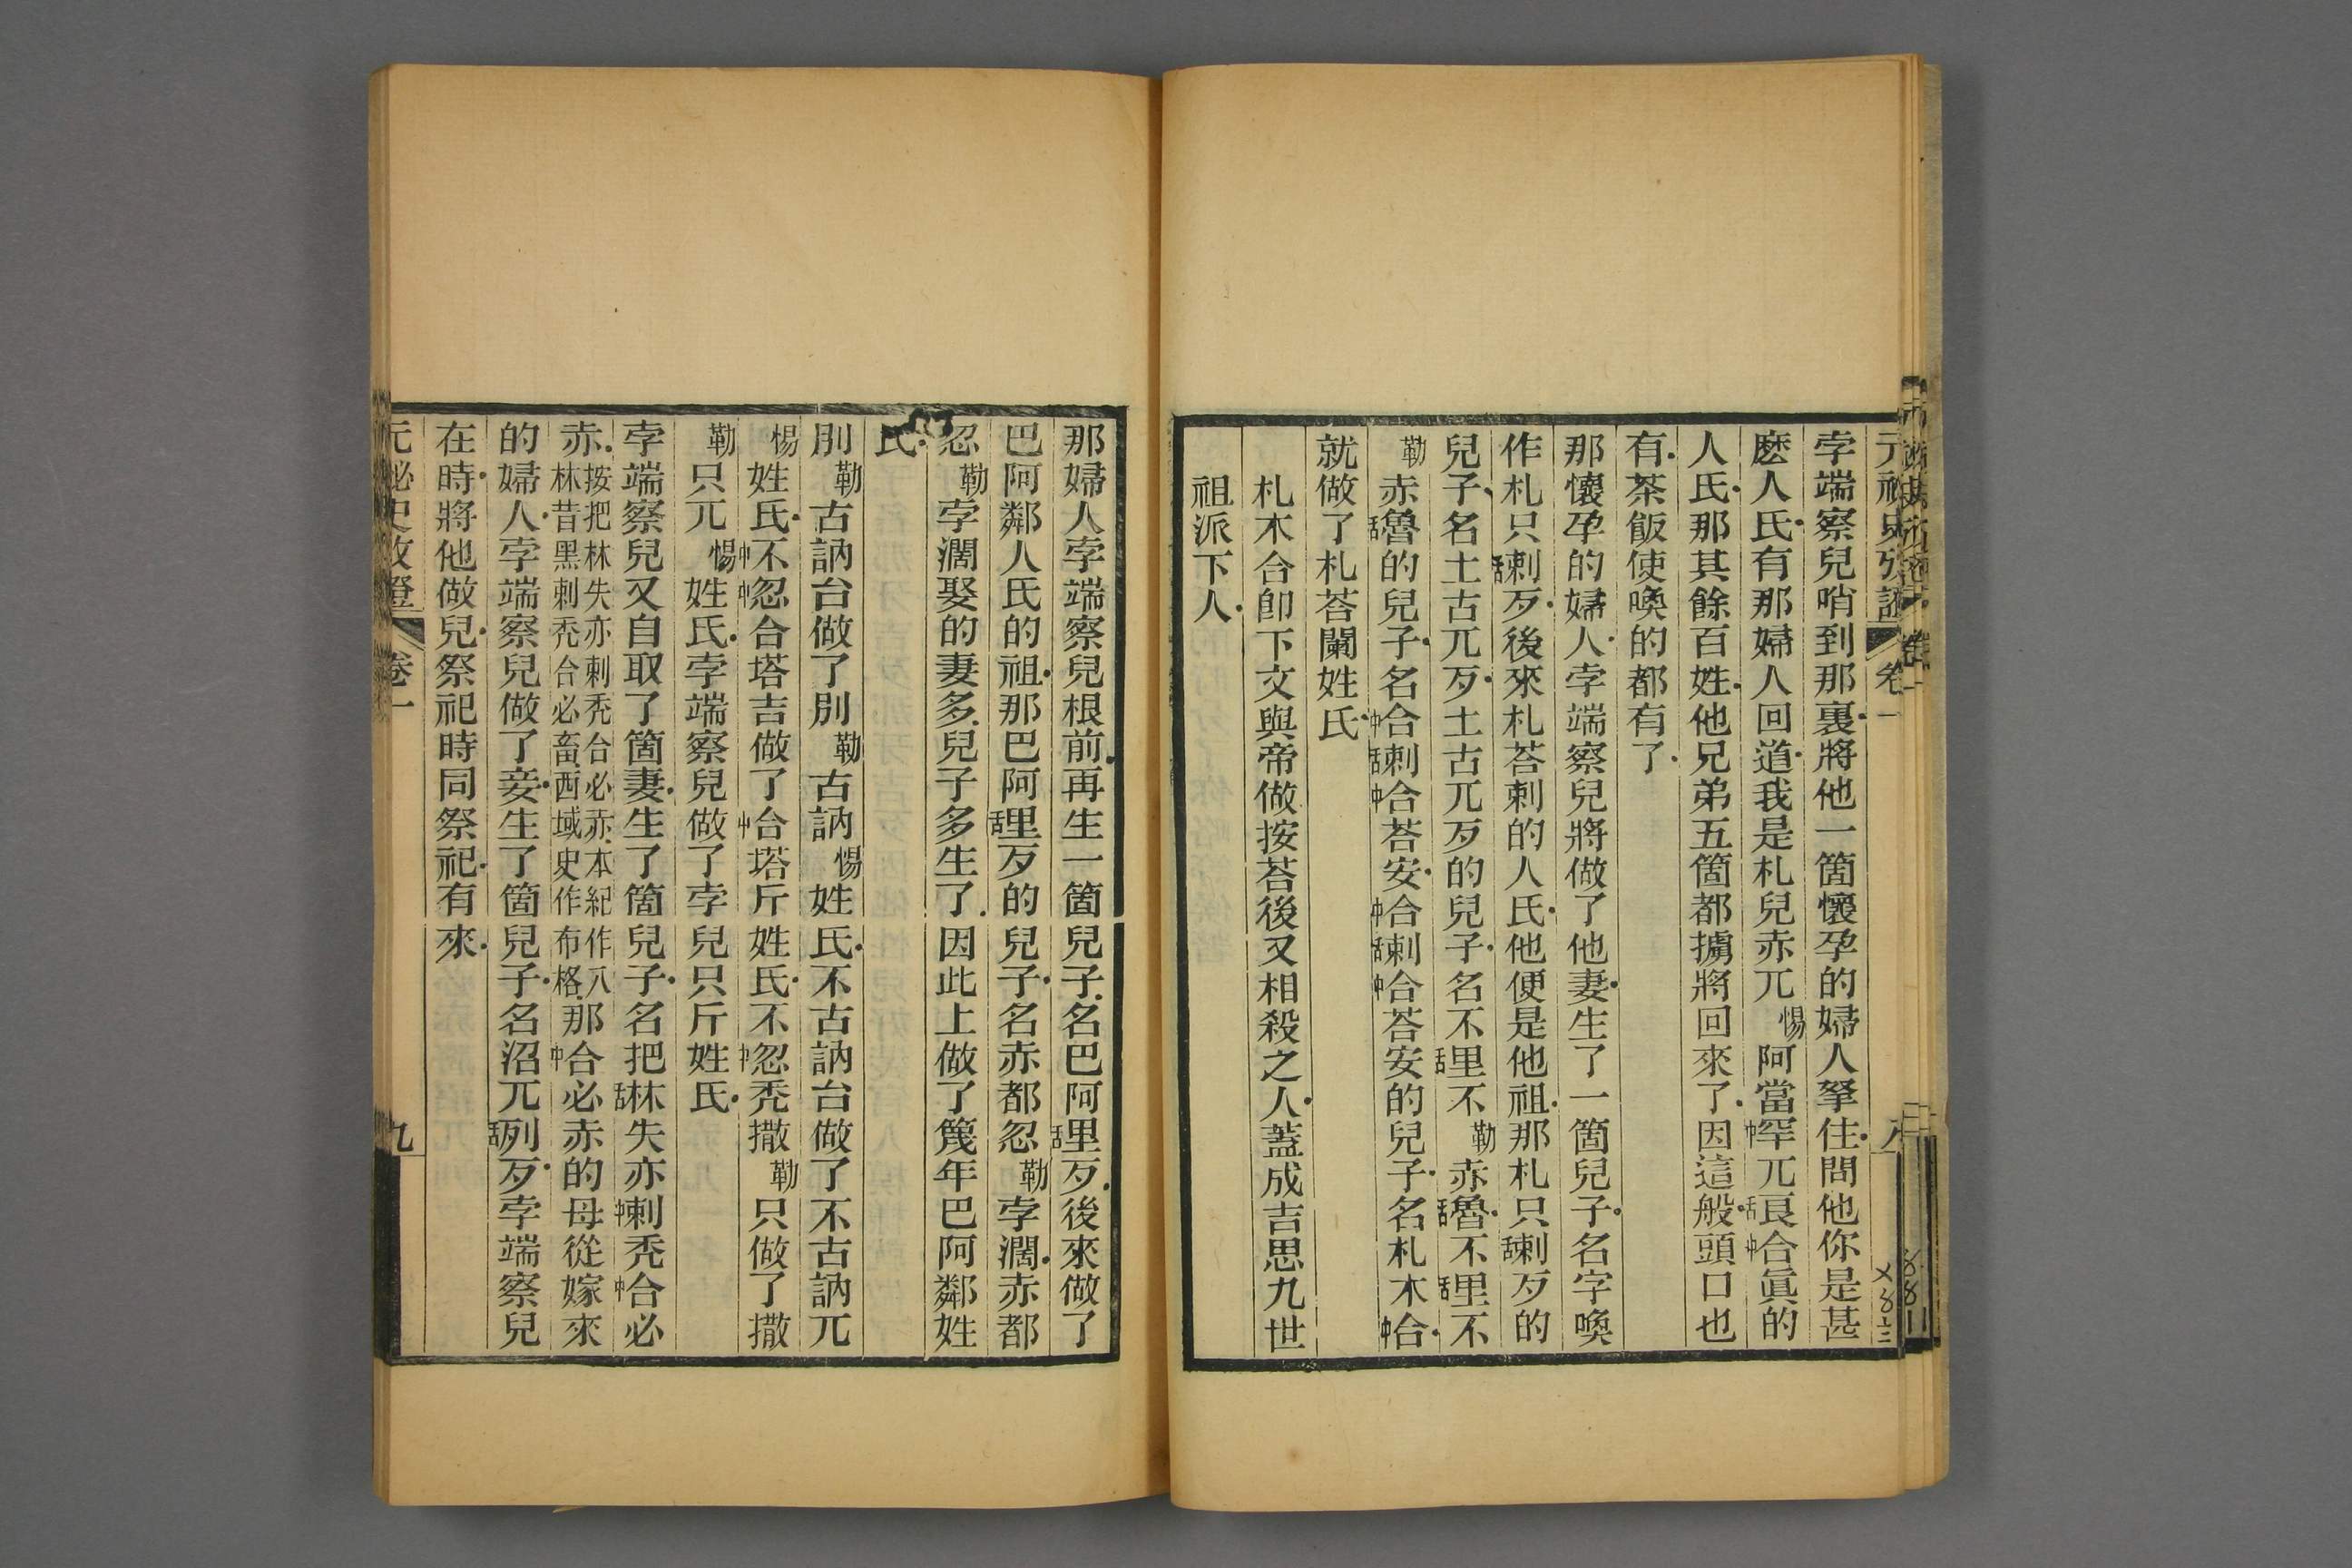 元祕史攷證 卷一 八
孛端察兒哨到那裏將他一箇懷孕的婦人拏住問他你是甚
麽人氏有那婦人回道我是札兒赤兀惕阿當中罕兀舌良中合眞的
人氏那其餘百姓他兄弟五箇都擄將回來了因這般頭口也
有茶飯使喚的都有了
那懷孕的婦人孛端察兒將做了他妻生了一箇兒子名字喚
作札只舌剌歹後來札荅剌的人氏他便是他祖那札只舌剌歹的
兒子名土古兀歹土古兀歹的兒子名不舌里不勒赤舌魯不舌里不
勒赤舌魯的兒子名中合舌剌中合荅安中合舌剌中合荅安的兒子名札木中合
就做了札荅闌姓氏
札木合卽下文與帝做按荅後又相殺之人蓋成吉思九世
祖派下人
那婦人孛端察兒根前再生一箇兒子名巴阿舌里歹後來做了
巴阿鄰人氏的祖那巴阿舌里歹的兒子名赤都忽勒孛濶赤都
忽勒孛濶娶的妻多兒子多生了因此上做了篾年巴阿鄰姓
氏
別勒古訥台做了別勒古訥惕姓氏不古訥台做了不古訥兀
惕姓氏中不中忽合塔吉做了中合塔斤姓氏不中忽禿撒勒只做了撒
勒只兀惕姓氏孛端察兒做了孛兒只斤姓氏
孛端察兒又自取了箇妻生了箇兒子名把舌林失亦中剌禿中合必
赤按把林失亦剌禿合必赤本紀作八林昔黑剌禿合必畜西域史作布格那中合必赤的母從嫁來
的婦人孛端察兒做了妾生了箇兒子名沼兀舌列歹孛端察兒
在時將他做兒祭祀時同祭祀有來
元祕史攷證 卷一 九